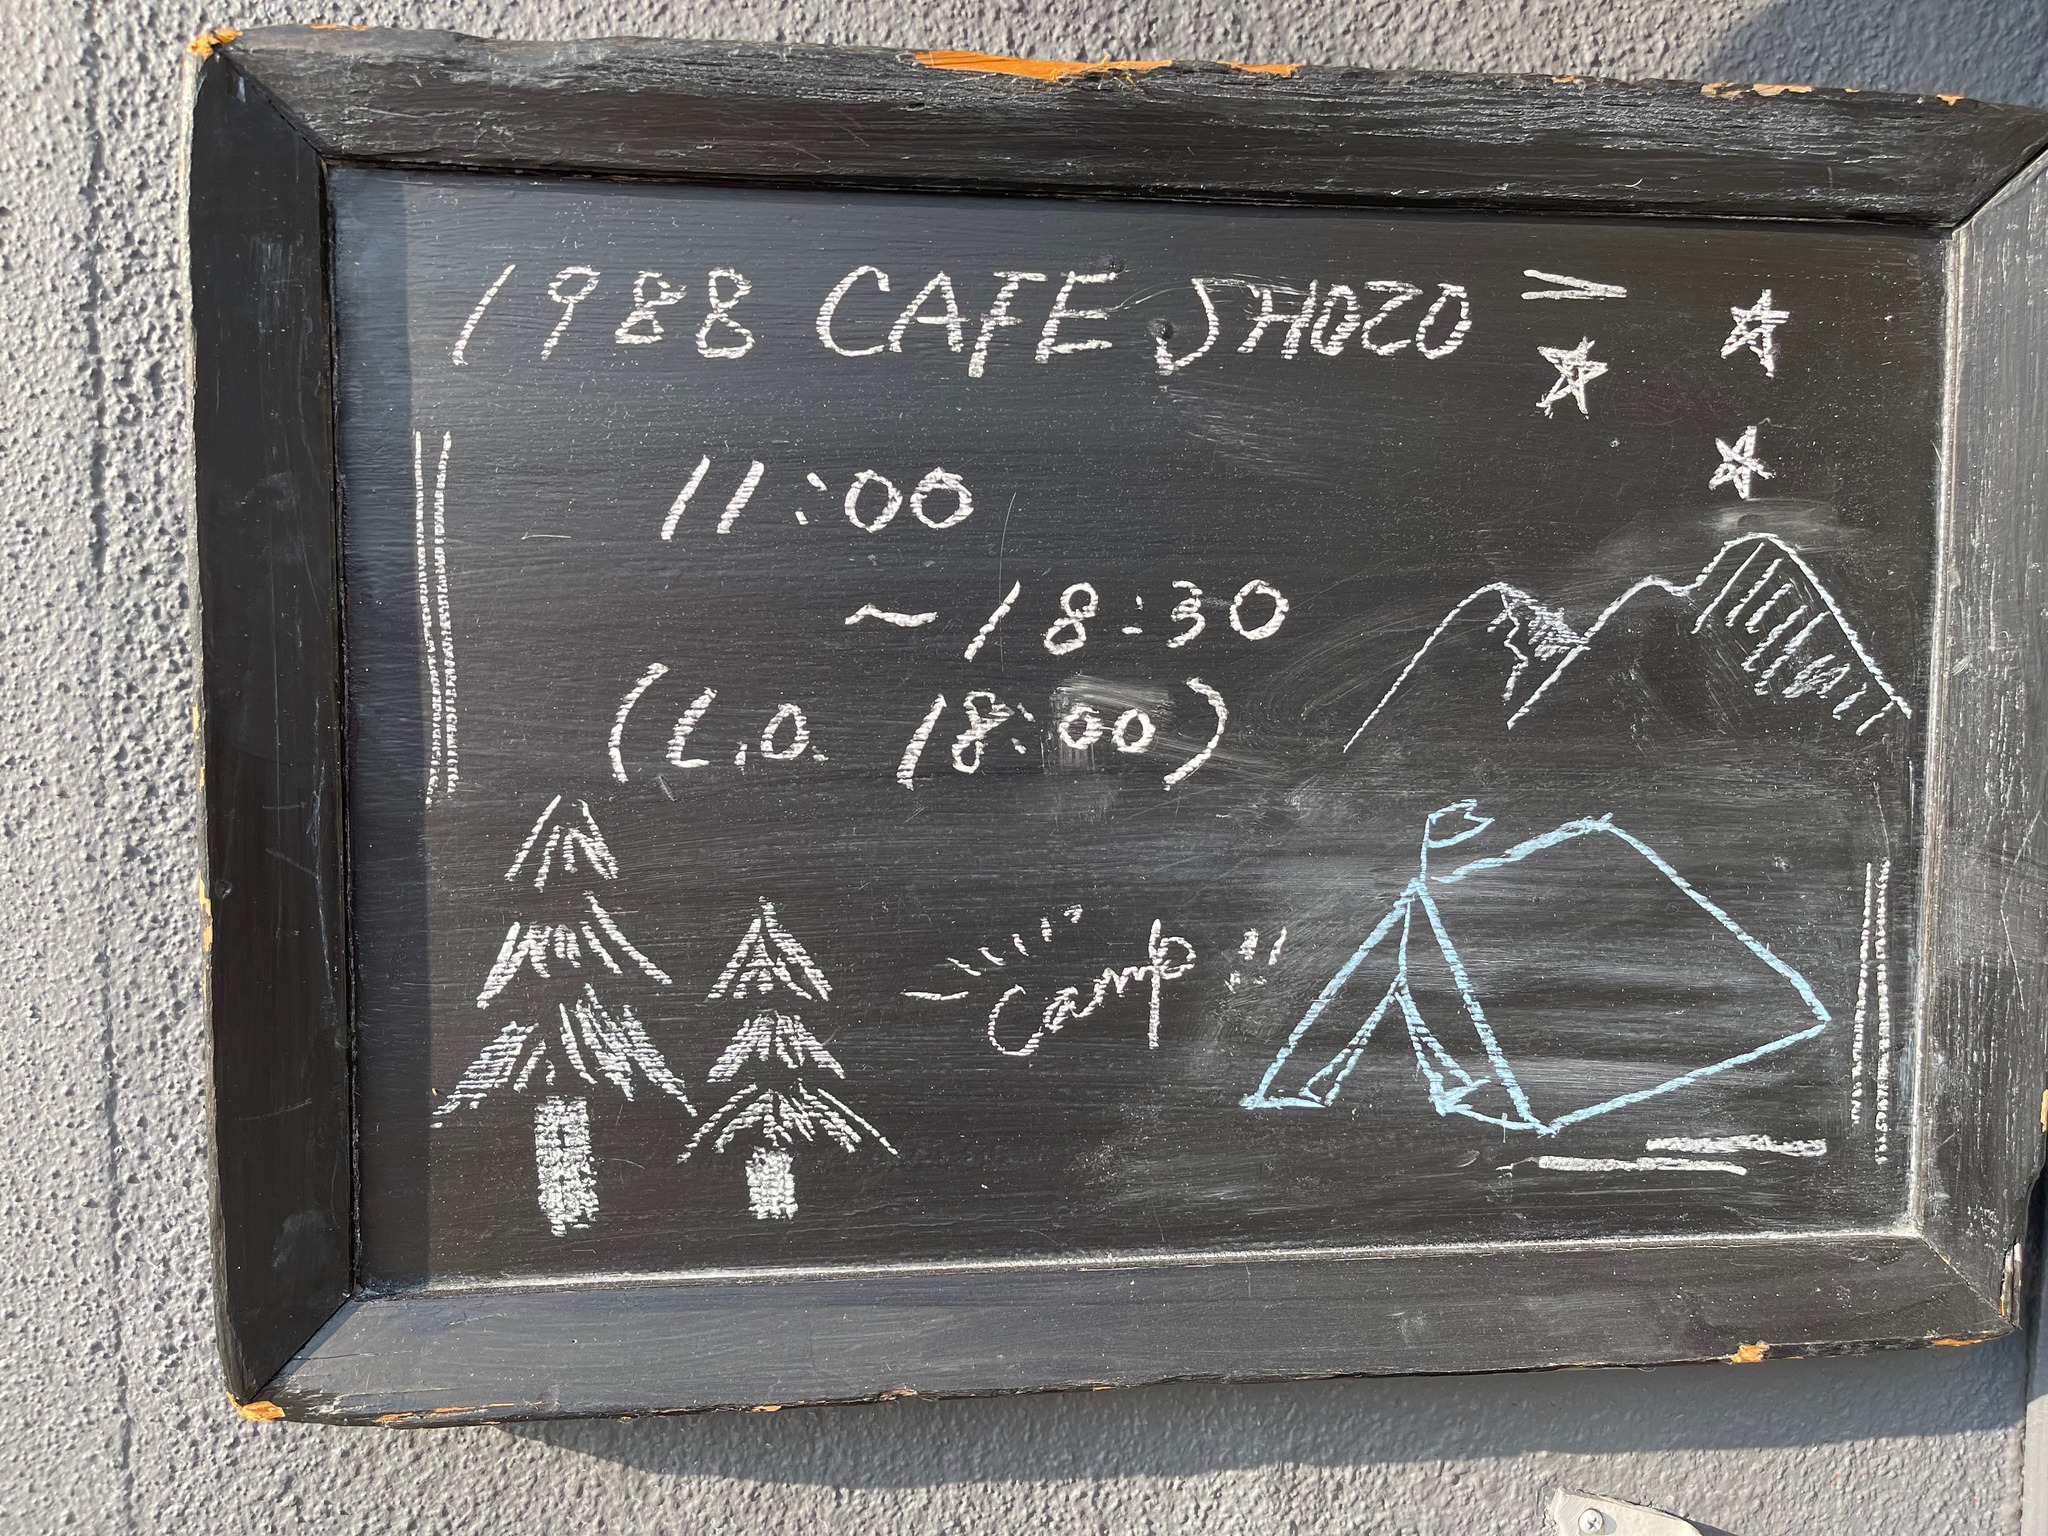 1988 CAFE SHOZO
11:00
~18:30
(L.O. 18:00)
Camp!!